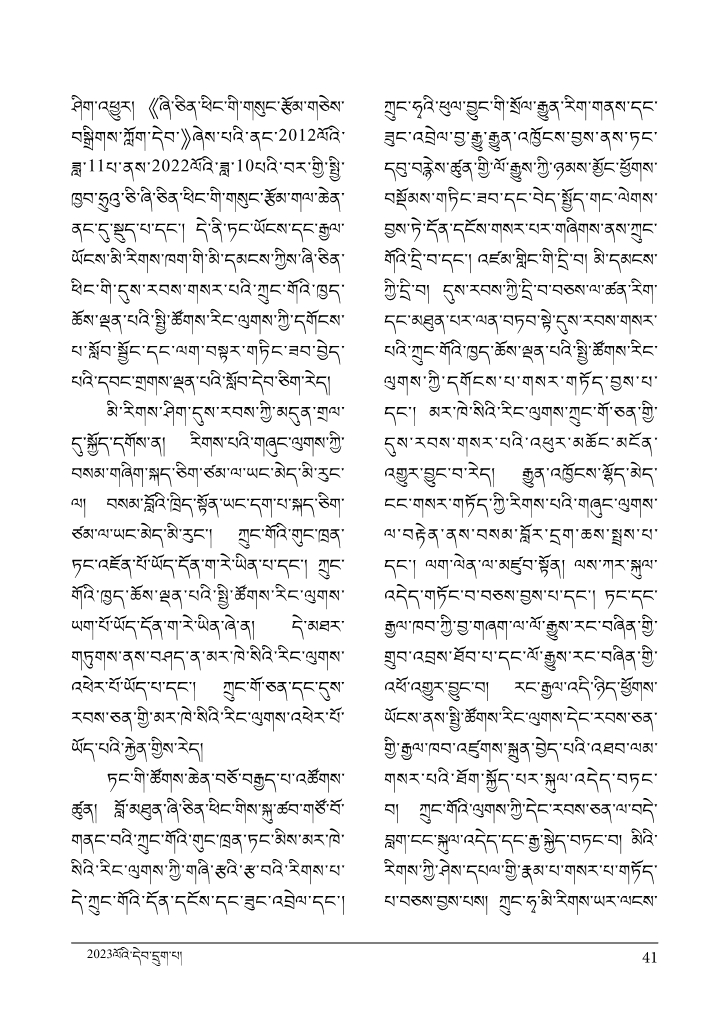 ཤིག་འཕྱུར། 《ཞི་ཅིན་ཕིང་གི་གསུང་རྩོམ་གཅེས་
བསྒྲིགས་ཀློག་དེབ་》ཞེས་པའི་ནང་2012ལོའི་
ཟླ་11པ་ནས་2022ལོའི་ཟླ་10པའི་བར་གྱི་སྤྱི་
ཁྱབ་ཧྲུའུ་ཅི་ཞི་ཅིན་ཕིང་གི་གསུང་རྩོམ་གལ་ཆེན་
ནང་དུ་སྡུད་པ་དང༌། དེ་ནི་ཏང་ཡོངས་དང་རྒྱལ་
ཡོངས་མི་རིགས་ཁག་གི་མི་དམངས་ཀྱིས་ཞི་ཅིན་
ཕིང་གི་དུས་རབས་གསར་པའི་ཀྲུང་གོའི་ཁྱད་
ཆོས་ལྡན་པའི་སྤྱི་ཚོགས་རིང་ལུགས་ཀྱི་དགོངས་
པ་སློབ་སྦྱོང་དང་ལག་བསྟར་གཏིང་ཟབ་བྱེད་
པའི་དབང་གྲགས་ལྡན་པའི་སློབ་དེབ་ཅིག་རེད།
མི་རིགས་ཤིག་དུས་རབས་ཀྱི་མདུན་གྲལ་
དུ་སྐྱོད་དགོས་ན། རིགས་པའི་གཞུང་ལུགས་ཀྱི་
བསམ་གཞིག་སྐད་ཅིག་ཙམ་ལ་ཡང་མེད་མི་རུང་
ལ། བསམ་བློའི་ཁྲིད་སྟོན་ཡང་དག་པ་སྐད་ཅིག་
ཙམ་ལ་ཡང་མེད་མི་རུང༌། ཀྲུང་གོའི་གུང་ཁྲན་
ཏང་འཇོན་པོ་ཡོད་དོན་ག་རེ་ཡིན་པ་དང༌། ཀྲུང་
གོའི་ཁྱད་ཆོས་ལྡན་པའི་སྤྱི་ཚོགས་རིང་ལུགས་
ཡག་པོ་ཡོད་དོན་ག་རེ་ཡིན་ཞེ་ན། དེ་མཐར་
གཏུགས་ནས་བཤད་ན་མར་ཁེ་སིའི་རིང་ལུགས་
འཕེར་པོ་ཡོད་པ་དང༌། ཀྲུང་གོ་ཅན་དང་དུས་
རབས་ཅན་གྱི་མར་ཁེ་སིའི་རིང་ལུགས་འཕེར་པོ་
ཡོད་པའི་རྐྱེན་གྱིས་རེད།
ཏང་གི་ཚོགས་ཆེན་བཅོ་བརྒྱད་པ་འཚོགས་
ཚུན། བློ་མཐུན་ཞི་ཅིན་ཕིང་གིས་སྐུ་ཚབ་གཙོ་བོ་
གནང་བའི་ཀྲུང་གོའི་གུང་ཁྲན་ཏང་མིས་མར་ཁེ་
སིའི་རིང་ལུགས་ཀྱི་གཞི་རྩའི་རྩ་བའི་རིགས་པ་
དེ་ཀྲུང་གོའི་དོན་དངོས་དང་ཟུང་འབྲེལ་དང༌།
ཀྲུང་ཧྭའི་ཕུལ་བྱུང་གི་སྲོལ་རྒྱུན་རིག་གནས་དང་
ཟུང་འབྲེལ་བྱ་རྒྱུ་རྒྱུན་འཁྱོངས་བྱས་ནས་ཏང་
དབུ་བརྙེས་ཚུན་གྱི་ལོ་རྒྱུས་ཀྱི་ཉམས་མྱོང་ཕྱོགས་
བསྡོམས་གཏིང་ཟབ་དང་བེད་སྤྱོད་གང་ལེགས་
བྱས་ཏེ་དོན་དངོས་གསར་པར་གཞིགས་ནས་ཀྲུང་
གོའི་དྲི་བ་དང༌། འཛམ་གླིང་གི་དྲི་བ། མི་དམངས་
ཀྱི་དྲི་བ། དུས་རབས་ཀྱི་དྲི་བ་བཅས་ལ་ཚན་རིག་
དང་མཐུན་པར་ལན་བཏབ་སྟེ་དུས་རབས་གསར་
པའི་ཀྲུང་གོའི་ཁྱད་ཆོས་ལྡན་པའི་སྤྱི་ཚོགས་རིང་
ལུགས་ཀྱི་དགོངས་པ་གསར་གཏོད་བྱས་པ་
དང༌། མར་ཁེ་སིའི་རིང་ལུགས་ཀྲུང་གོ་ཅན་གྱི་
དུས་རབས་གསར་པའི་འཕུར་མཆོང་མངོན་
འགྱུར་བྱུང་བ་རེད། རྒྱུན་འཁྱོངས་ལྷོད་མེད་
ངང་གསར་གཏོད་ཀྱི་རིགས་པའི་གཞུང་ལུགས་
ལ་བརྟེན་ནས་བསམ་བློར་དྲག་ཆས་སྤྲས་པ་
དང༌། ལག་ལེན་ལ་མཛུབ་སྟོན། ལས་ཀར་སྐུལ་
འདེད་གཏོང་བ་བཅས་བྱས་པ་དང༌། ཏང་དང་
རྒྱལ་ཁབ་ཀྱི་བྱ་གཞག་ལ་ལོ་རྒྱུས་རང་བཞིན་གྱི་
གྲུབ་འབྲས་ཐོབ་པ་དང་ལོ་རྒྱུས་རང་བཞིན་གྱི་
འཕོ་འགྱུར་བྱུང་བ། རང་རྒྱལ་འདི་ཉིད་ཕྱོགས་
ཡོངས་ནས་སྤྱི་ཚོགས་རིང་ལུགས་དེང་རབས་ཅན་
གྱི་རྒྱལ་ཁབ་འཛུགས་སྐྲུན་བྱེད་པའི་འཐབ་ལམ་
གསར་པའི་ཐོག་སྐྱོད་པར་སྐུལ་འདེད་བཏང་
བ། ཀྲུང་གོའི་ལུགས་ཀྱི་དེང་རབས་ཅན་ལ་བདེ་
བླག་ངང་སྐུལ་འདེད་དང་རྒྱ་སྐྱེད་བཏང་བ། མིའི་
རིགས་ཀྱི་ཤེས་དཔལ་གྱི་རྣམ་པ་གསར་པ་གཏོད་
པ་བཅས་བྱས་པས། ཀྲུང་ཧྭ་མི་རིགས་ཡར་ལངས་
2023ལོའི་དེབ་དྲུག་པ། 41